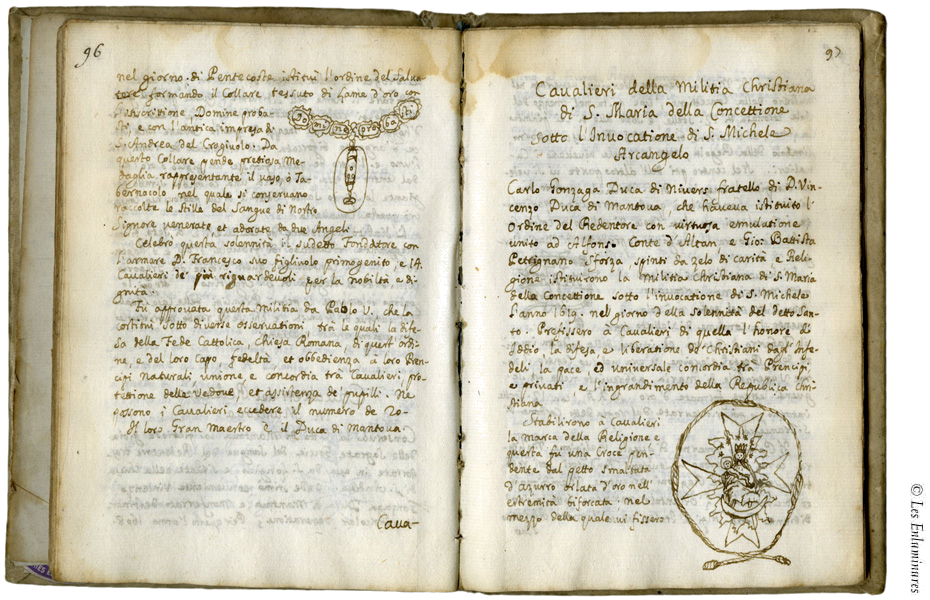 96
nel giorno di Pentecoste istituì l'ordine del Salva-
tore formando il Collare tessuto di lame d'oro con
l'inscrittione, Domine proba-
sti, e con l'antica impresa di
S. Andrea del Crogivolo. Da
questo Collare pende pretiosa Me-
daglia rappresentante il vaso, ò Ta-
bernocolo nel quale si conservano
raccolte le Stille del Sangue di Nostro
Signore venerate, et adorate da due Angeli.
Celebrò questa solennità il sudetto Fondatore con
l'armare D. Francesco suo figliuolo primogenito, e 14
Cavalieri de' più riguardevoli per la nobiltà e di-
gnità.
Fù approvata questa Militia da Paolo V. che la
costituì sotto diverse osservationi, trà le quali la dife-
sa della Fede Cattolica, Chiesa Romana, di quest'ordi-
ne, e del loro Capo, fedeltà et obbedienza à loro Pren-
cipi naturali, unione e concordia trà Cavalieri, pro-
tettione delle vedove, et assistenza de' pupilli. Ne
possono i Cavalieri eccedere il numero de 20.
Il loro Gran Maestro e il Duca di Mantova.
Cava-
Do mi ne pro ba sti
97
Cavalieri della Militia Christiana
di S. Maria della Concettione
sotto l'Invocatione di S. Michele
Arcangelo
Carlo Gonzaga Duca di Nivers fratello di D. Vin-
cenzo Duca di Mantova, che haveva istituito l'
Ordine del Redentore con virtuosa emulatione
unito ad Alfonso Conte d'Altan, e Gio: Battista
Petrignano Sforza spinti da zelo di carità e Reli-
gione istituirono la militia Christiana di S. Maria
della Concettione sotto l'invocatione di S. Michele
l'anno 1619. nel giorno della solennità del detto San-
to. Prefissero à Cavalieri di quella l'honore di
Iddio, la difesa e liberatione de' Christiani dagl'Infe-
deli, la pace, ed universale concordia trà Prencipi
e privati, e l'ingrandimento della Republica Chri-
stiana.
Stabilirono à Cavalieri
la Marca della Religione e
questa fu una Croce pen-
dente dal petto smaltata
d'azurro orlata d'oro nell'
estremità biforcata nel
mezzo della quale vi fissero
© Les Enluminures